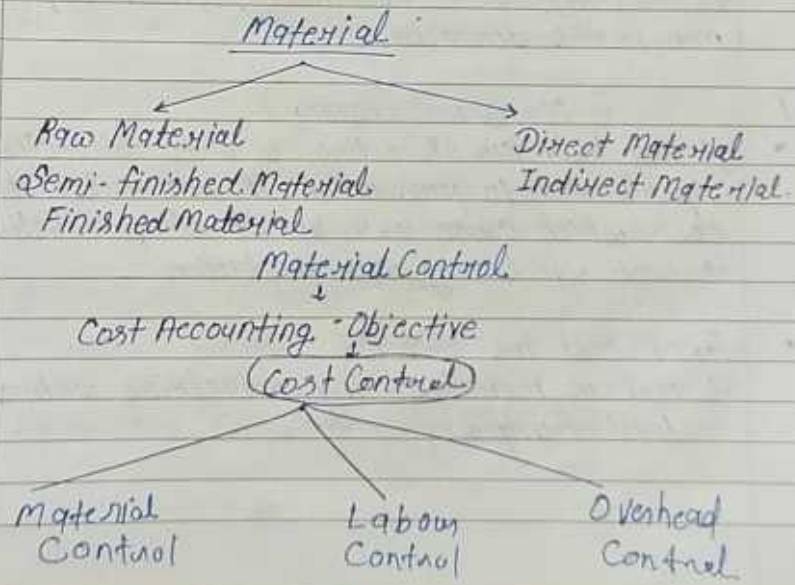 Material
Raw Material
Semi-finished Material
Finished Material
Direct Material
Indirect Material.
Material Control
Cost Accounting - Objective
Cost Control
Material
Control
Labour
Control
Overhead
Control